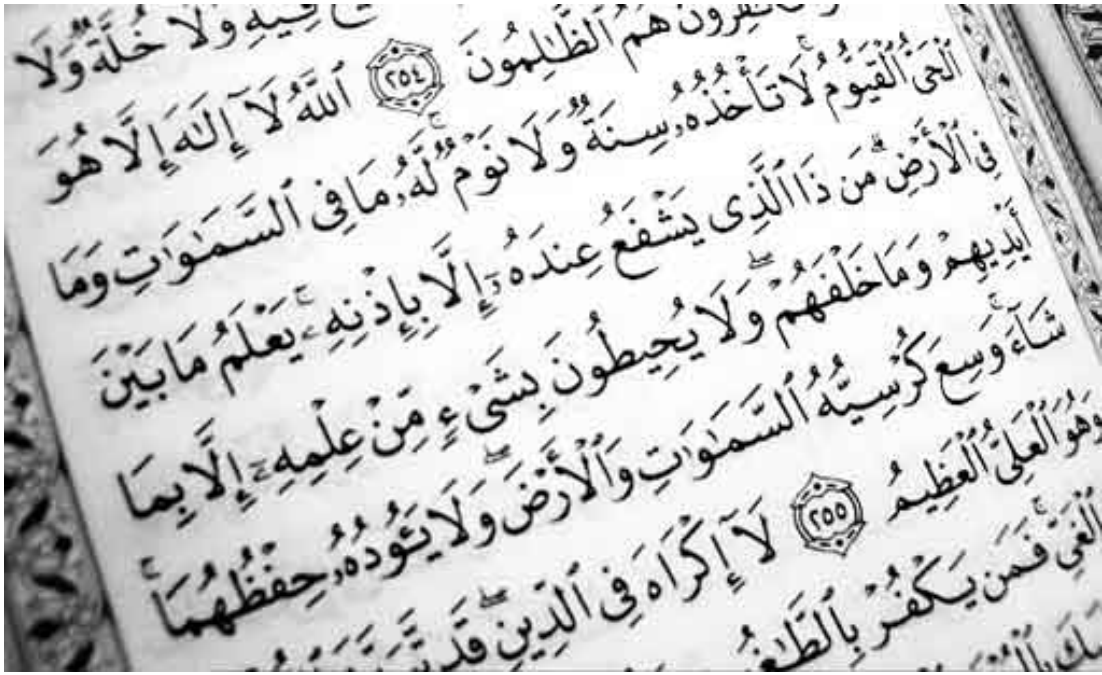 فِيهِ وَلَا خُلَّةٌ وَلَا
هُمُ ٱلظَّـٰلِمُونَ ٢٥٤ ٱللَّهُ لَآ إِلَـٰهَ إِلَّا هُوَ
ٱلْحَىُّ ٱلْقَيُّومُ ۚ لَا تَأْخُذُهُۥ سِنَةٌ وَلَا نَوْمٌ ۚ لَّهُۥ مَا فِى ٱلسَّمَـٰوَٰتِ وَمَا
فِى ٱلْأَرْضِ ۗ مَن ذَا ٱلَّذِى يَشْفَعُ عِندَهُۥٓ إِلَّا بِإِذْنِهِۦ ۚ يَعْلَمُ مَا بَيْنَ
أَيْدِيهِمْ وَمَا خَلْفَهُمْ ۖ وَلَا يُحِيطُونَ بِشَىْءٍ مِّنْ عِلْمِهِۦٓ إِلَّا بِمَا
شَآءَ ۚ وَسِعَ كُرْسِيُّهُ ٱلسَّمَـٰوَٰتِ وَٱلْأَرْضَ ۖ وَلَا يَـُٔودُهُۥ حِفْظُهُمَا ۚ
وَهُوَ ٱلْعَلِىُّ ٱلْعَظِيمُ ٢٥٥ لَآ إِكْرَاهَ فِى ٱلدِّينِ ۖ قَد
ٱلْغَىِّ ۚ فَمَن يَكْفُرْ